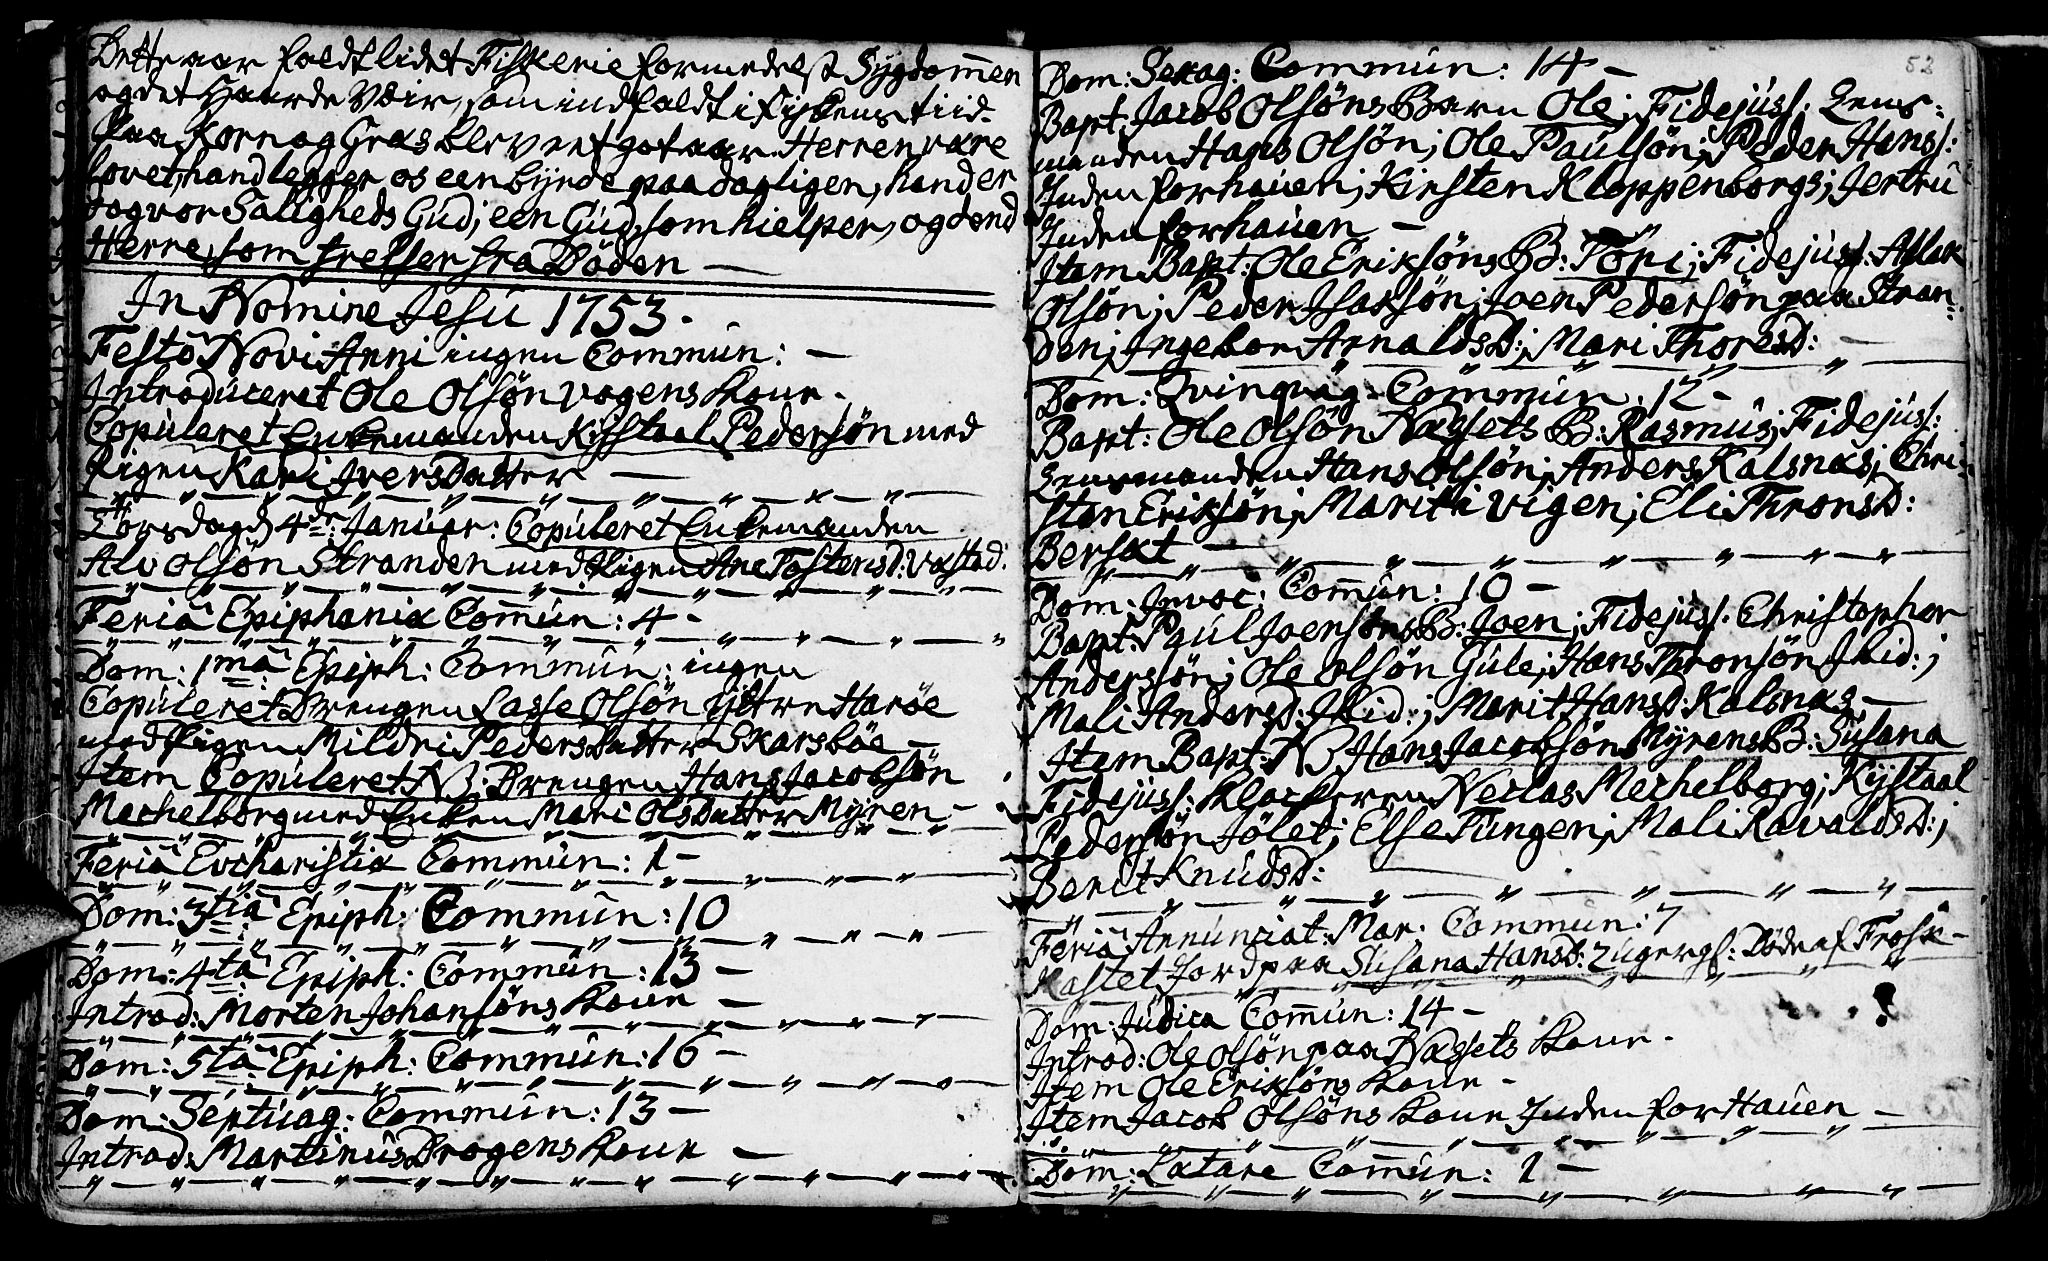 Dette aar faldt lidet Fiskerie formedelst Sygdommen
og det Haarde Veir, som indfaldt i fiskens tiid.
Paa Korn og Græs blev et got aar. Herren være
lovet, hand legger os een byrde paa dagligen, hand er
dog vor Saligheds Gud; een Gud, som hielper, og dend
Herre, som frelser fra Döden —
In Nomine Jesu 1753.
Festo Novi Anni ingen Commun: —
Introduceret Ole Olsön Vogens Kone.
Copuleret Enkemanden Kystaal Pedersön med
Pigen Kari Iversdatter —
Torsdag d 4de Januar: Copuleret Enkemanden
Alv Olsön Stranden med Pigen Ane Tostensd: Vastad.
Feria Epiphaniæ Comun: 4 –
Dom: 1ma Epiph: Commun: ingen
Copuleret Drengen Lasse Olsön Ytre Haröe
med Pigen Mildri Pedersdatter Skarsböe —
Item Copuleret NB: Drengen Hans Jacobsön
Mechelborg med Enken Mari Olsdatter Myren –
Feria Evcharistiæ Commun: 1 –
Dom: 3tia Epiph: Commun: 10
Dom: 4ta Epiph: Commun: 13 –
Introd: Morten Johansöns Kone —
Dom: 5ta Epiph: Commun: 16 –
Dom: Septuag: Commun: 13 –
Introd: Martinus Drogens Kone —
52
Dom: Sexag: Commun: 14 –
Bapt: Jacob Olsöns Barn Ole; Fidejuss. Lens-
manden Hans Olsön; Ole Paulsön; Peder Hans:
Inden for hauen; Kirsten Kloppenborgs; Jertru
Inden for hauen —
Item Bapt: Ole Eriksöns B: Töri; Fidejuss: Aslak
Olsön; Peder Isaksön; Joen Pedersön paa Stran-
den; Ingebor Arnaldsd:; Mari Thoresd: —
Dom: Qvinqvag. Commun: 12 –
Bapt: Ole Olsön Næssets B: Rasmus; Fidejuss:
Lensmanden Hans Olsön; Anders Kalsnæs; Chri-
sten Eriksön; Marit i Vigen; Eli Thronsd:
Bersæt —
Dom: Invoc: Comun: 10 –
Bapt: Paul Joensöns B: Joen; Fidejuss. Christopher
Anderssön; Ole Olsön Gule; Hans Thronsön Ibid:;
Mali Andersd: Ibid:; Marit Hansd: Kalsnæs —
Item Bapt: NB Hans Jacobsön Myrens B: Susana
Fidejuss: Klockeren Neclas Mechelborg; Kystaal
Pedersön Sölet; Else Tungen; Mali Ravaldsd:;
Berit Knudsd:
Feria Annunciat: Mar. Commun: 7
Kastet Jord paa Susana Hansd: 2 uger gl: Döde af Frosk –
Dom: Judica Comun: 14 –
Introd: Ole Olsön paa Næssets Kone.
Item Ole Eriksöns Kone –
Item Jacob Olsöns Kone Inden for Hauen —
Dom: Lætare Comun: 1 —